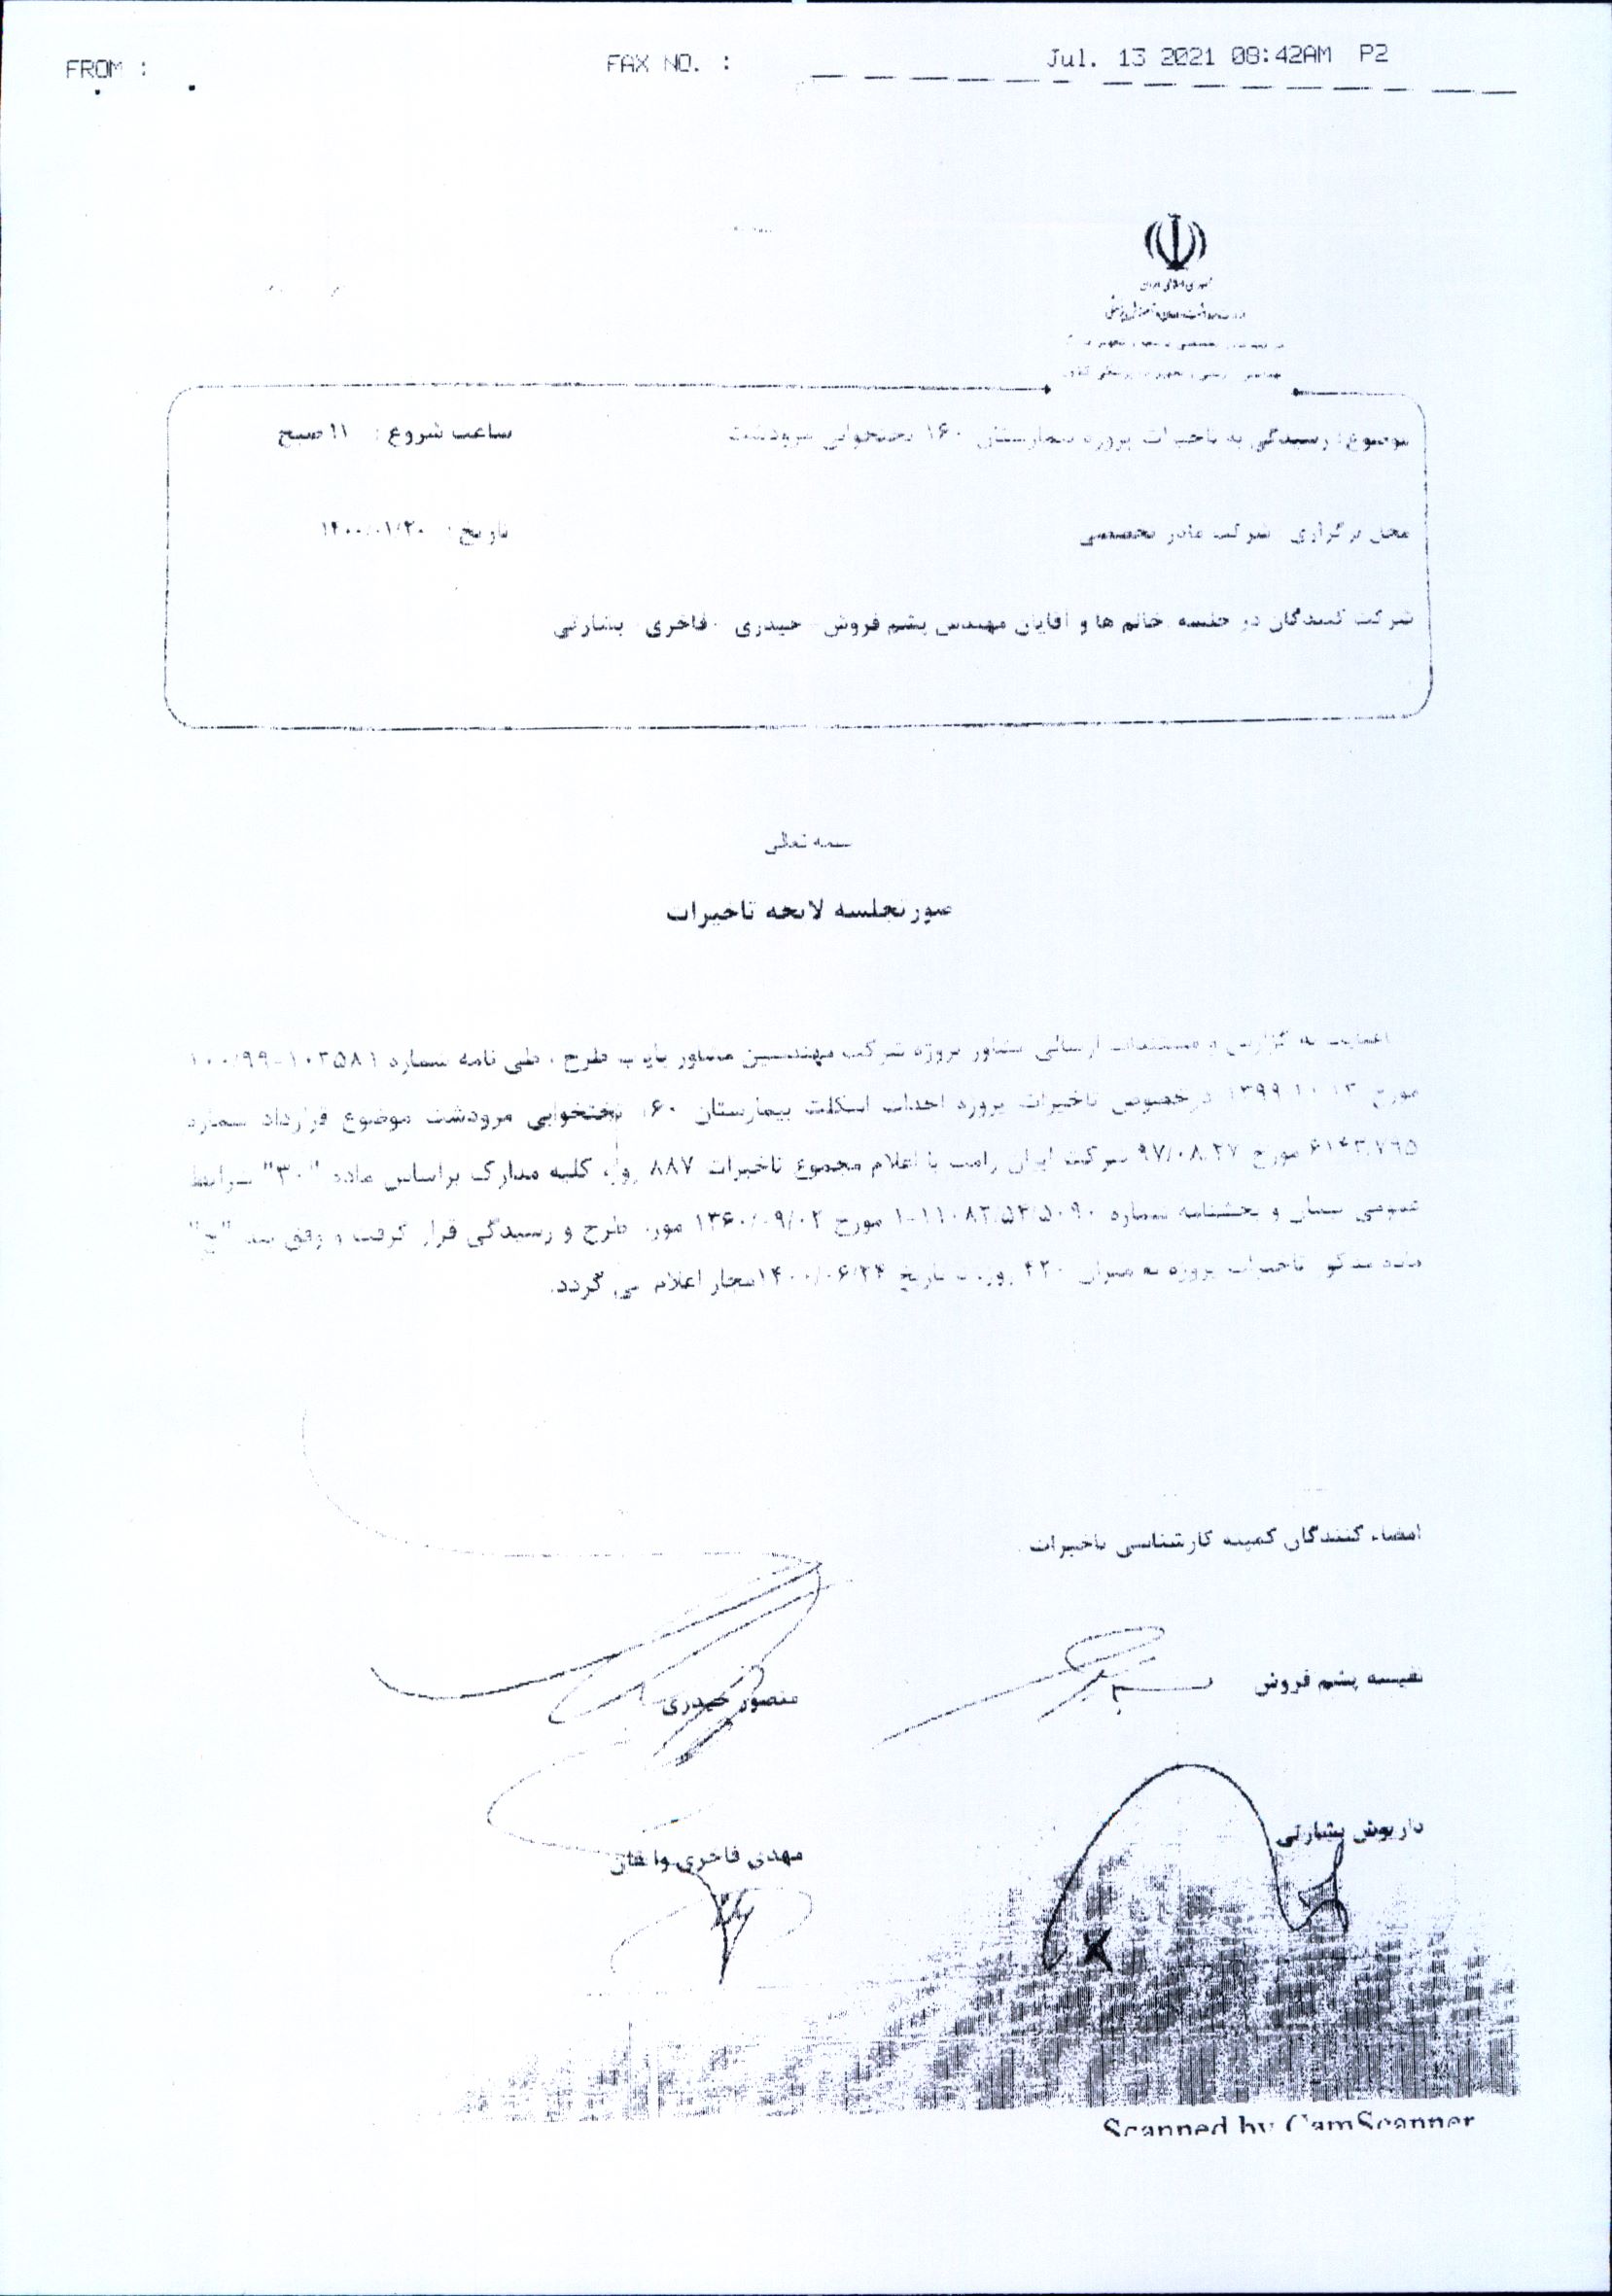 FROM :
FAX NO. :
Jul. 13 2021 08:42AM P2
موضوع: رسیدگی به تاخیرات پروژه بیمارستان ۱۶۰ تختخوابی مرودشت
ساعت شروع : ۱۱ صبح
محل برگزاری شرکت مادر تخصصی
تاریخ :
شرکت کنندگان در جلسه خانم ها و آقایان مهندس پشم فروش - حیدری - فاخری - بشارتی
بسمه تعالی
صورتجلسه لایحه تاخیرات
به گزارش و مستندات ارسالی مشاور پروژه شرکت مهندسین مشاور پایاب طرح ، طی نامه شماره
مورخ درخصوص تاخیرات پروژه احداث اسکلت بیمارستان ۱۶۰ تختخوابی مرودشت موضوع قرارداد شماره
مورخ ۹۷/۰۸/۲۷ شرکت ایران رامب با اعلام مجموع تاخیرات ۸۸۷ روز، کلیه مدارک براساس ماده "۳۰" شرایط
عمومی پیمان و بخشنامه شماره مورخ ۱۳۶۰/۰۹/۰۲ مورد طرح و رسیدگی قرار گرفت و وفق بند "ج"
ماده مذکور تاخیرات پروژه به میزان روز تا تاریخ ۱۴۰۰/۰۶/۲۴ مجاز اعلام می گردد.
امضاء کنندگان کمیته کارشناسی تاخیرات
نفیسه پشم فروش
منصور حیدری
داریوش بشارتی
مهدی فاخری
Scanned by CamScanner